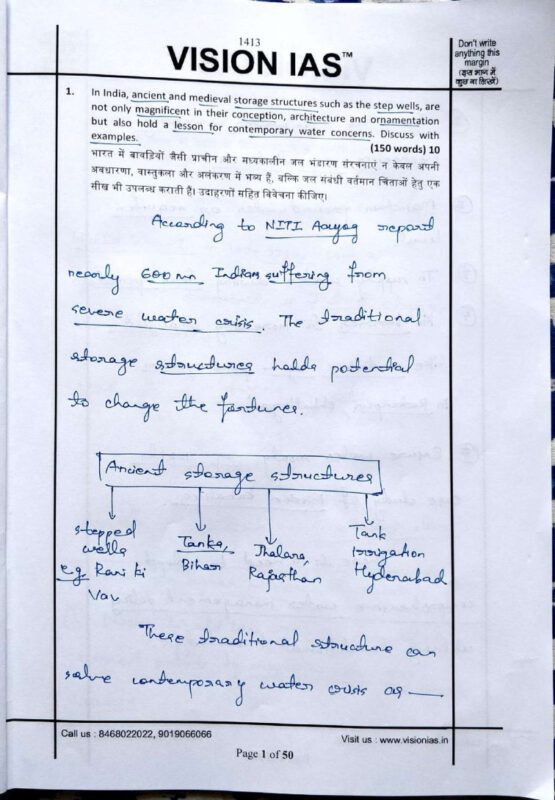 1413
VISION IAS™
Don't write
anything this
margin
(इस भाग में
कुछ ना लिखें)
1. In India, ancient and medieval storage structures such as the step wells, are
not only magnificent in their conception, architecture and ornamentation
but also hold a lesson for contemporary water concerns. Discuss with
examples. (150 words) 10
भारत में बावड़ियों जैसी प्राचीन और मध्यकालीन जल भंडारण संरचनाएं न केवल अपनी
अवधारणा, वास्तुकला और अलंकरण में भव्य हैं, बल्कि जल संबंधी वर्तमान चिंताओं हेतु एक
सीख भी उपलब्ध कराती हैं। उदाहरणों सहित विवेचना कीजिए।
According to NITI Aayog report
nearly 600 mn Indian suffering from
severe water crisis. The traditional
storage structures holds potential
to change the fortunes.
Ancient storage structures
stepped
wells
e.g. Rani ki
Vav
Tanka,
Bihar
Jhalara,
Rajasthan
Tank
Irrigation
Hyderabad
These traditional structure can
solve contemporary water crisis as —
Call us : 8468022022, 9019066066
Visit us : www.visionias.in
Page 1 of 50